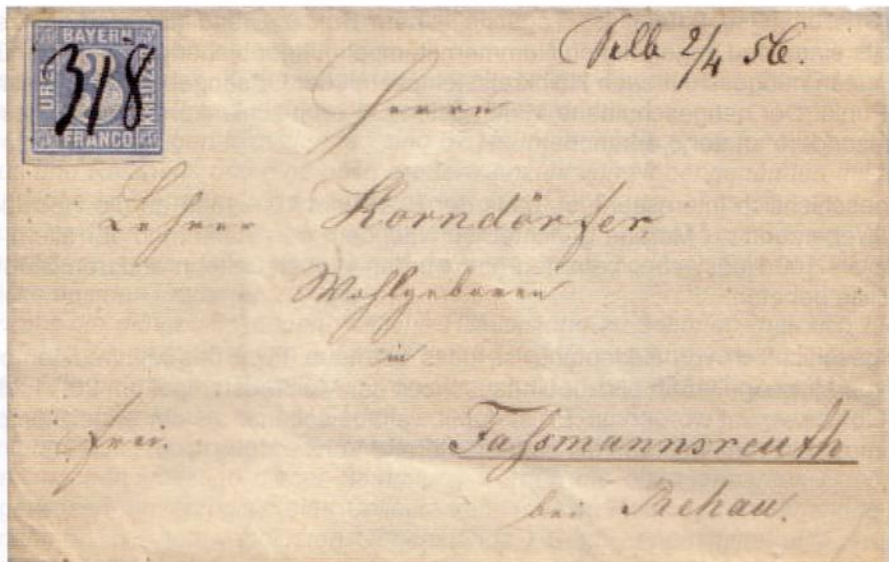 BAYERN
DREI
3
KREUZER
FRANCO
318
Selb 2/4 56.
Herrn
Lehrer Korndörfer
Wohlgeboren
in
frei. Faſsmannsreuth
bei Rehau.